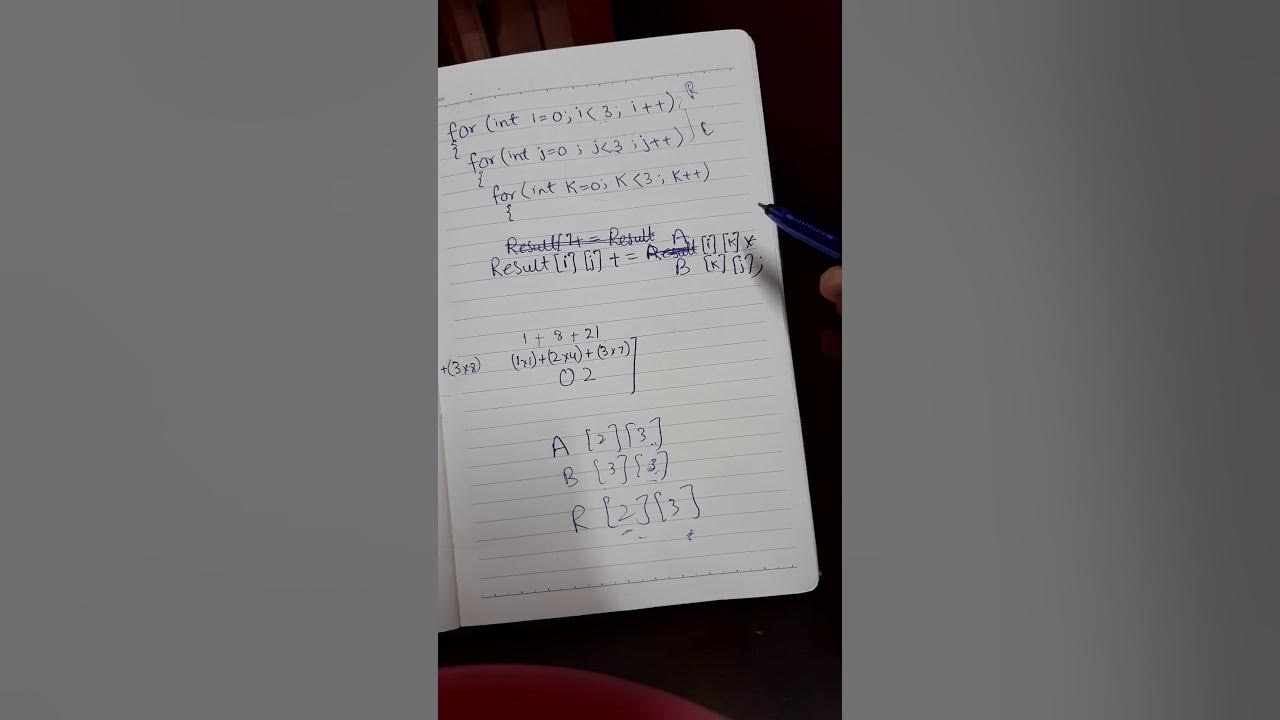 for (int i=0; i<3; i++) R
{
for (int j=0; j<3; j++) C
{
for (int K=0; K<3; K++)
{
Result[ ]+ = Result
Result[i][j] + = Result A [i][K] *
B [K][j];
1 + 8 + 21
+(3x8) (1x1)+(2x4)+(3x7)
02
A [2][3]
B [3][3]
R [2][3]